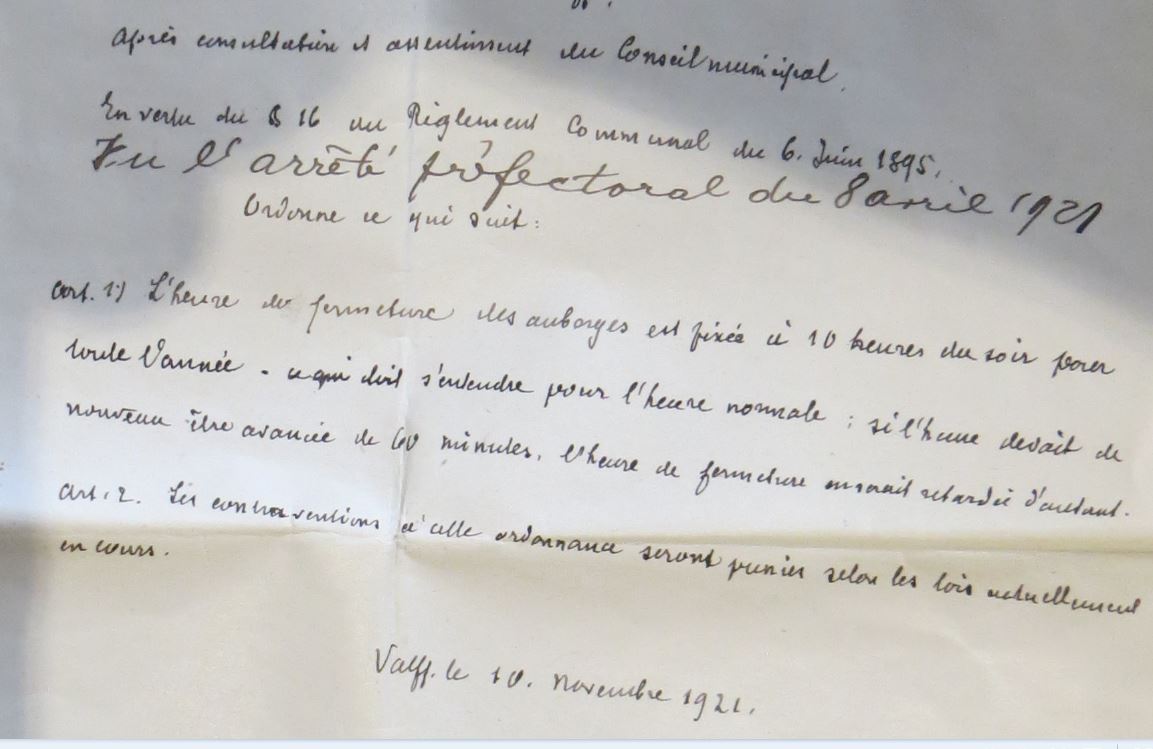 Après consultation et assentiment du Conseil municipal.
En vertu du § 16 du Règlement Communal du 6. Juin 1895.
Vu l'arrêté préfectoral du 8 avril 1921
Ordonne ce qui suit:
Art. 1) L'heure de fermeture des auberges est fixée à 10 heures du soir pour
toute l'année - ce qui doit s'entendre pour l'heure normale ; si l'heure devait de
nouveau être avancée de 60 minutes, l'heure de fermeture en serait retardée d'autant.
Art. 2. Les contraventions à cette ordonnance seront punies selon les lois actuellement
en cours.
Valff. le 10. novembre 1921.